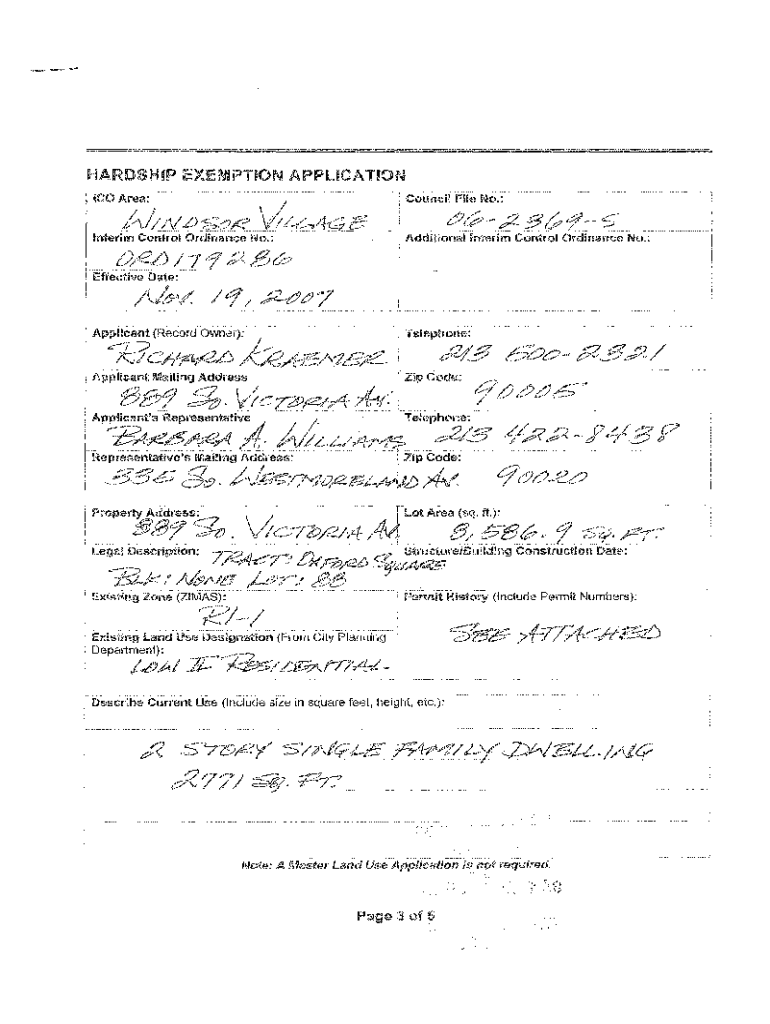 HARDSHIP EXEMPTION APPLICATION
ICO Area:
WINDSOR VILLAGE
Council File No.:
06-2369-S
Interim Control Ordinance No.:
ORD179286
Additional Interim Control Ordinance No.:
Effective Date:
NOV. 19, 2007
Applicant (Record Owner):
RICHARD KRAEMER
Telephone:
213 500-2321
Applicant Mailing Address
889 SO. VICTORIA AV.
Zip Code:
90005
Applicant's Representative
BARBARA A. WILLIAMS
Telephone:
213 422-8438
Representative's Mailing Address:
335 SO. WESTMORELAND AV.
Zip Code:
90020
Property Address:
889 SO. VICTORIA AV
Lot Area (sq. ft.):
8,586.9 SQ. FT.
Legal Description: TRACT: OXFORD SQUARE
BLK: NONE LOT: 88
Structure/Building Construction Date:
Existing Zone (ZIMAS):
R1-1
Permit History (Include Permit Numbers):
SEE ATTACHED
Existing Land Use Designation (From City Planning
Department):
LOW II RESIDENTIAL
Describe Current Use (Include size in square feet, height, etc.):
2 STORY SINGLE FAMILY DWELLING
2771 SQ. FT.
Note: A Master Land Use Application is not required.
Page 3 of 5